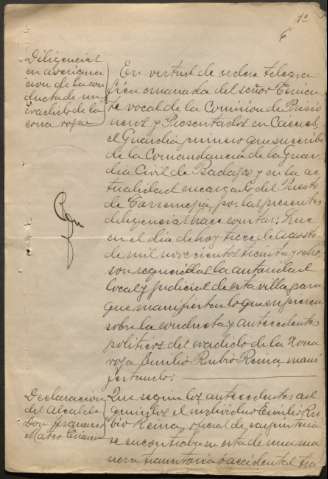 1º
6
Diligencias
en averigua
cion de la con
ducta de un
Evadido de la
zona roja
En virtud de orden telegra
fica emanada del señor Tenien
te vocal de la Comision de Prisio
neros y Presentados en Caceres,
el Guardia primero que suscribe
de la Comandancia de la Guar
dia Civil de Badajoz y en la ac
tualidad encargado del Puesto
de Torremejia, por las presentes
diligencias hace constar: Que
en el dia de hoy trece de Agosto
de mil novecientos treinta y ocho,
son requeridas la autoridad
local y judicial de esta villa para
que manifiesten lo que sepan
sobre la conducta y antecedentes
politicos del evadido de la zona
roja Emilio Rubio Roma, mani
festando:
Declaracion
del Alcalde
Don
Mateo
Que segun los antecedentes ad
quiridos el individuo Emilio Ru
bio Roma, oficial de carpinteria
se encontraba en esta de una ma
nera transitoria o accidental